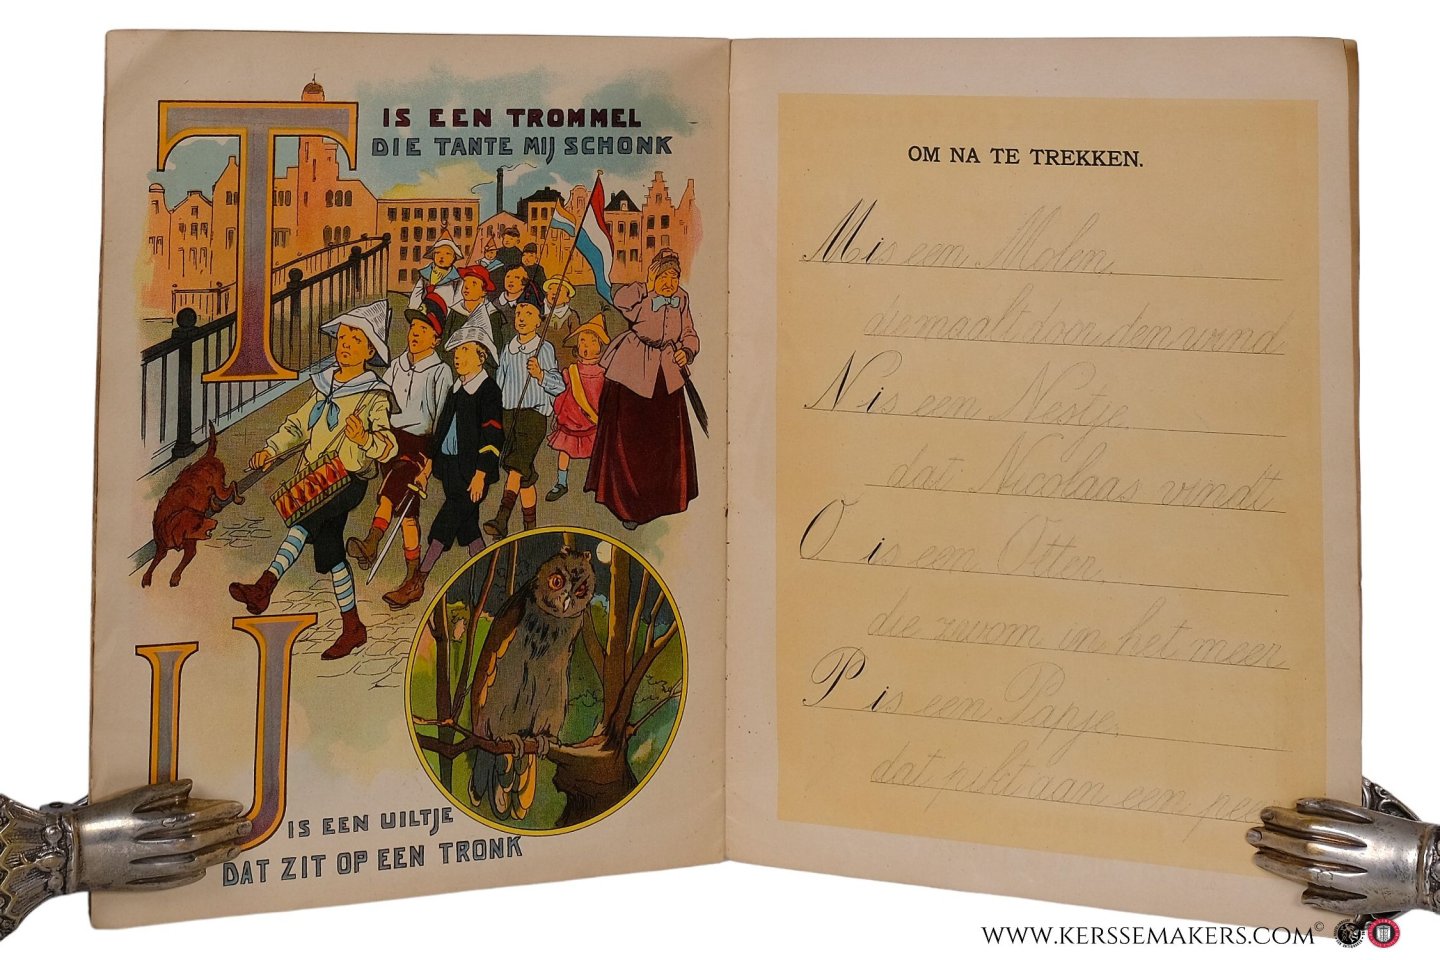 T IS EEN TROMMEL
DIE TANTE MIJ SCHONK
U IS EEN UILTJE
DAT ZIT OP EEN TRONK
OM NA TE TREKKEN.
M is een Molen,
die maalt door den wind
N is een Nestje,
dat Nicolaas vindt
O is een Otter,
die zwom in het meer
P is een Papje,
dat pikt aan een pee
WWW.KERSSEMAKERS.COM©